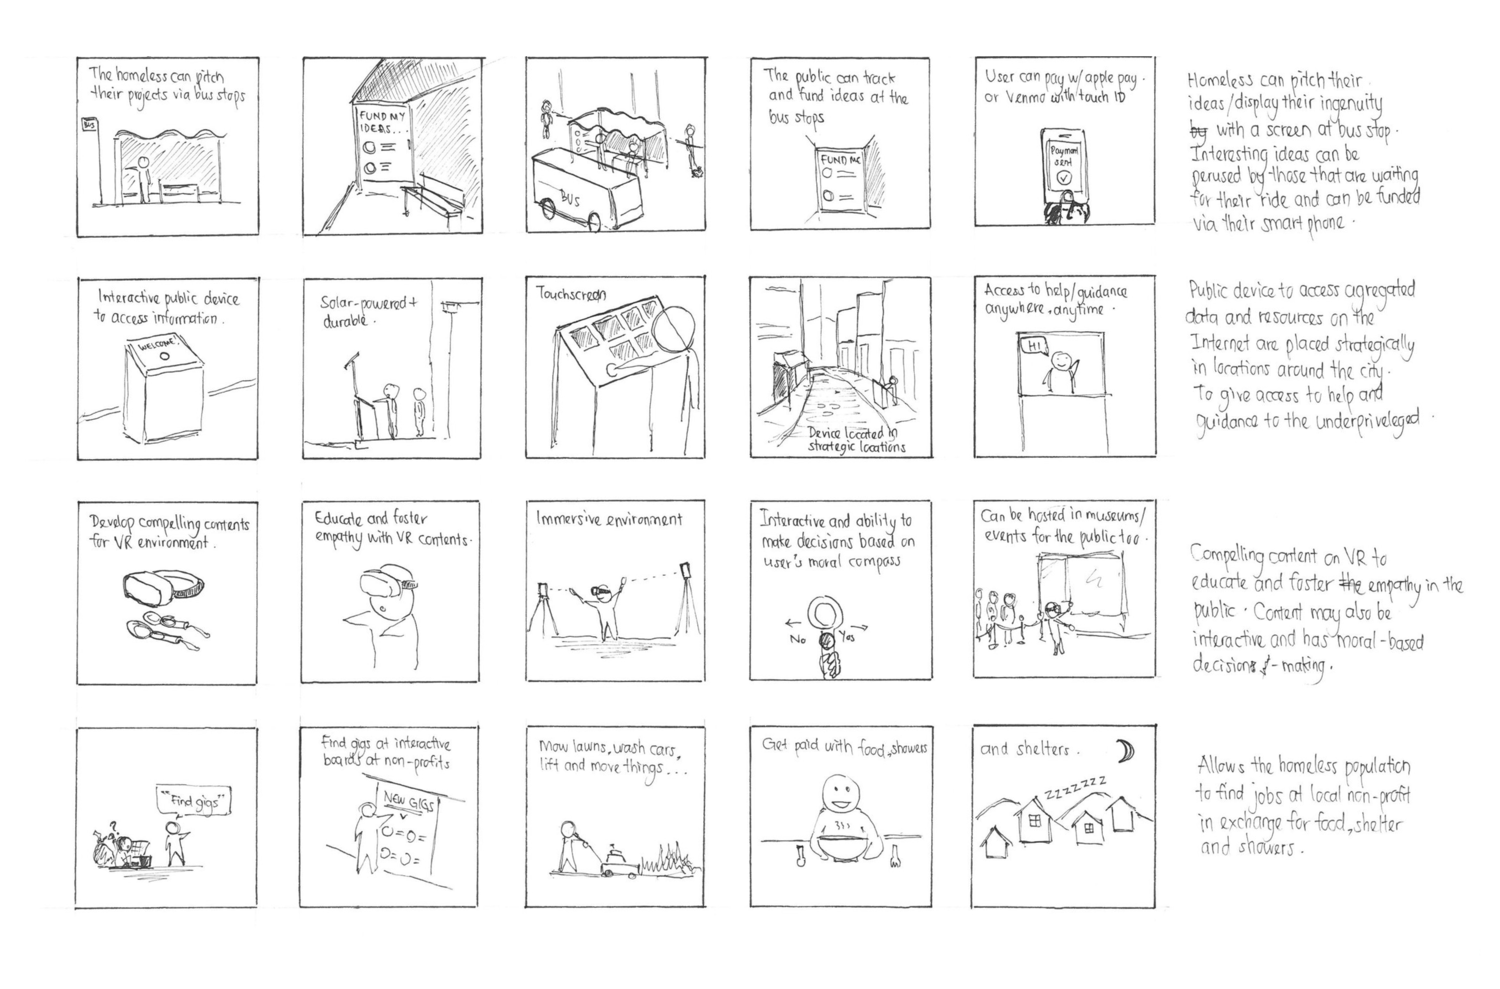 The homeless can pitch
their projects via bus stops
BUS
FUND MY
IDEAS...
BUS
The public can track
and fund ideas at the
bus stops
FUND ME
User can pay w/ apple pay.
or Venmo with touch ID
Payment
sent
Homeless can pitch their
ideas/display their ingenuity
by with a screen at bus stop.
Interesting ideas can be
perused by those that are waiting
for their ride and can be funded
via their smart phone.
Interactive public device
to access information.
WELCOME!
Solar-powered +
durable.
Touchscreen
Device located in
strategic locations
Access to help/guidance
anywhere, anytime.
HI!
Public device to access agregated
data and resources on the
Internet are placed strategically
in locations around the city.
To give access to help and
guidance to the underpriveleged.
Develop compelling contents
for VR environment.
Educate and foster
empathy with VR contents.
Immersive environment
Interactive and ability to
make decisions based on
user's moral compass
No
Yes
Can be hosted in museums/
events for the public too.
Compelling content on VR to
educate and foster the empathy in the
public. Content may also be
interactive and has moral-based
decisions-making.
?
"Find gigs"
Find gigs at interactive
boards at non-profits
NEW GIGS
Mow lawns, wash cars,
lift and move things...
Get paid with food, showers
and shelters.
ZZZZZZZ
Allows the homeless population
to find jobs at local non-profit
in exchange for food, shelter
and showers.